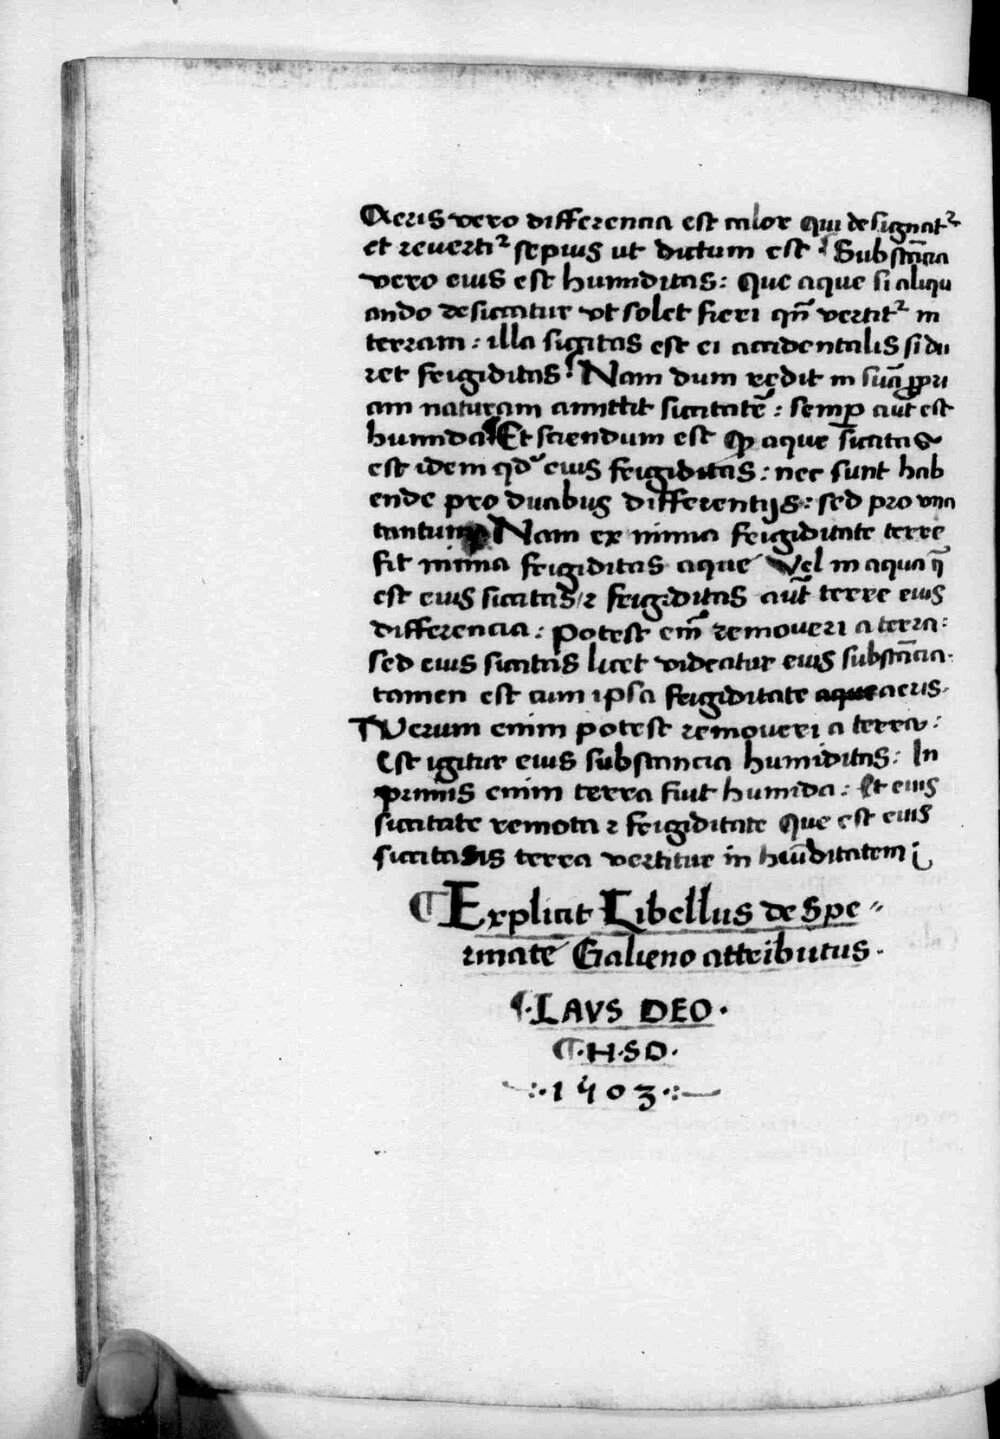 Aeris vero differencia est calor qui designat᷑
et reverti᷑ sepius ut dictum est. Substācia
vero eius est humiditas: que aque si aliqu
ando desiccatur ut solet fieri qn̄ vertit᷑ in
terram: illa siccitas est ei accidentalis si du
ret frigiditas. Nam dum redit in suā ꝓpri
am naturam amittit siccitatē: semꝑ aūt est
humida. Et sciendum est ꝙ aque siccitas
est idem qd̓ eius frigiditas: nec sunt hab
ende pro duabus differentijs: sed pro una
tantum. Nam ex nimia frigiditate terre
fit nimia frigiditas aque Vel in aqua q̄
est eius siccitas / ⁊ frigiditas aūt terre eius
differencia: Potest em̄ removeri a terra:
sed eius siccitas licet videatur eius substācia.
tamen est cum ipsa frigiditate aeris.
Verum enim potest removeri a terra:
Est igitur eius substancia humiditas: In
primis enim terra fiut humida: Et eius
siccitate remota ⁊ frigiditate que est eius
siccitas terra vertitur in hūditatem
¶ Explicit Libellus de Spe⸗
rmate Galieno attributus.
¶. LAVS DEO.
¶. H. S D.
.1503.